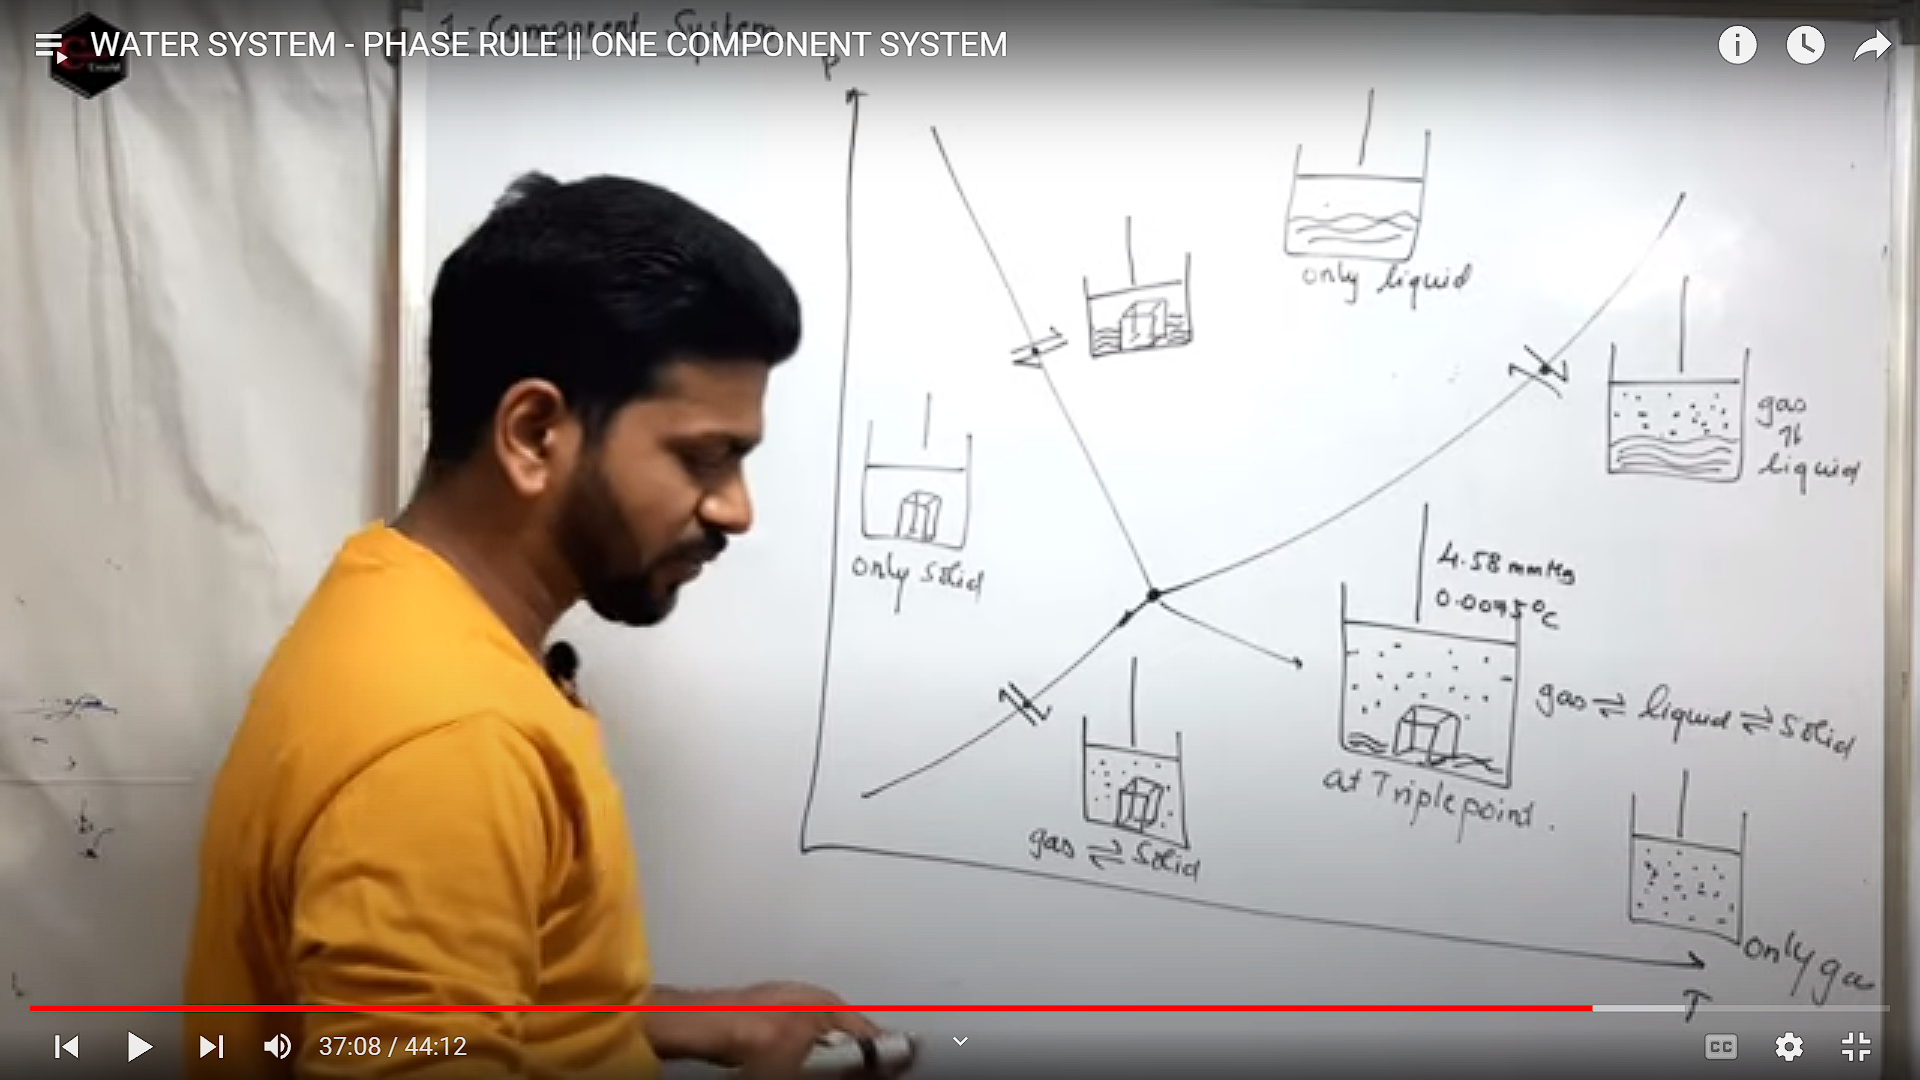 WATER SYSTEM - PHASE RULE || ONE COMPONENT SYSTEM
1-Component System
P
only liquid
gas
⇌
liquid
only solid
4.58 mmHg
0.0075°C
gas ⇌ liquid ⇌ solid
at Triple point.
gas ⇌ Solid
only gas
T
37:08 / 44:12
CC